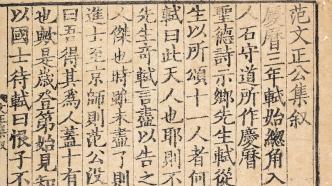 范文正公集叙
慶曆三年軾始總角入
人石守道所作慶曆
聖德詩示鄉先生軾從
生以所頌十一人者何
軾曰此天人也耶則不
先生奇軾言盡以告之
人傑也時雖未盡了則
進士至京師則范公没
曰吾得其為人蓋十有
也歟是歲登第始見知
以國士待軾曰恨子不